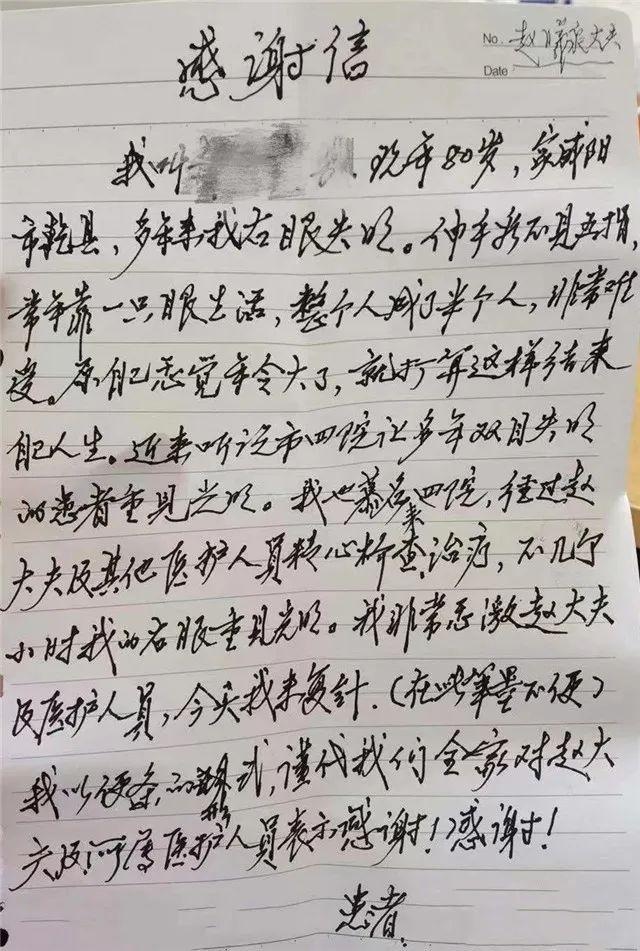 No. 赵大夫
Date
感谢信
我叫 现年80岁，家咸阳
市乾县，多年来我右眼失明。伸手看不见五指，
常年靠一只眼生活，整个人成了半个人，非常难
受。原自己感觉年令大了，就打算这样结束
自己人生。近来听说市四院让多年双目失明
的患者重见光明。我也慕名来四院，经过赵
大夫及其他医护人员精心检查治疗，不几个
小时我的右眼重见光明。我非常感激赵大夫
及医护人员，今天我来复针.（在此笔墨不便）
我以便条的形式，谨代我们全家对赵大
夫及所属医护人员表示感谢！感谢！
患者.